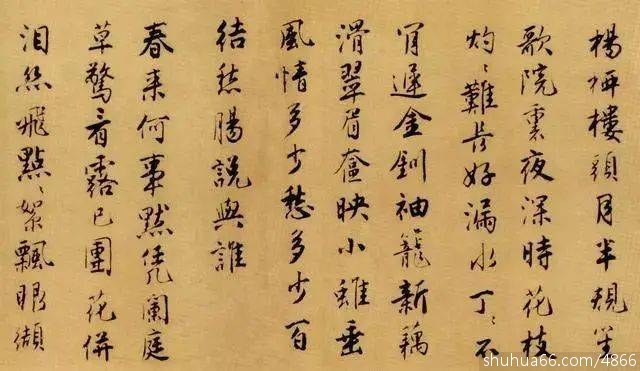 楊柳樓頭月半規笙
歌院裏夜深時花枝
灼〻難長好漏水丁〻不
肯遲金釧袖籠新藕
滑翠眉奩映小蛾垂
風情多少愁多少百
結愁腸說與誰
春來何事默任凡闌庭
草驚看露已團花倂
淚絲飛點〻絮飄眼纈
shuhua66.com/4866